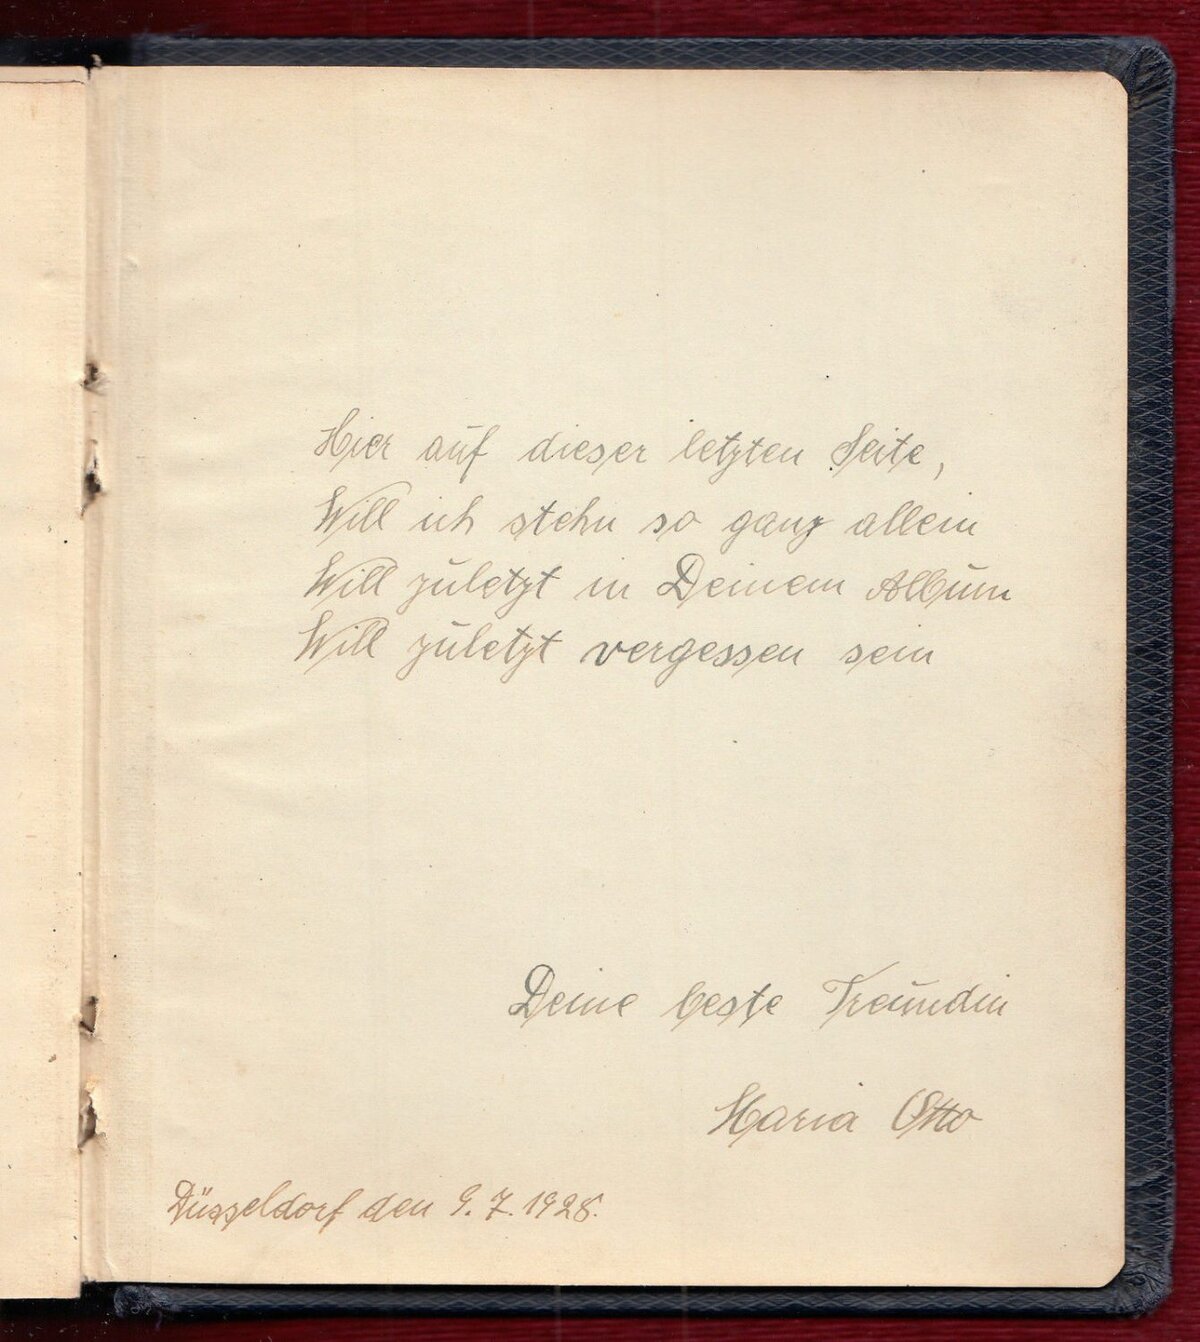 Hier auf dieser letzten Seite,
Will ich stehn so ganz allein
Will zuletzt in Deinem Album
Will zuletzt vergessen sein
Deine beste Freundin
Maria Otto
Düsseldorf den 9. 7. 1928.